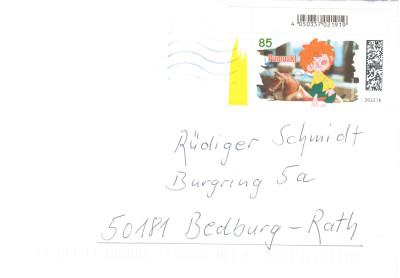 4 050357 021919
85
PUMUCKL
Rüdiger Schmidt
Burgring 5a
50181 Bedburg-Rath